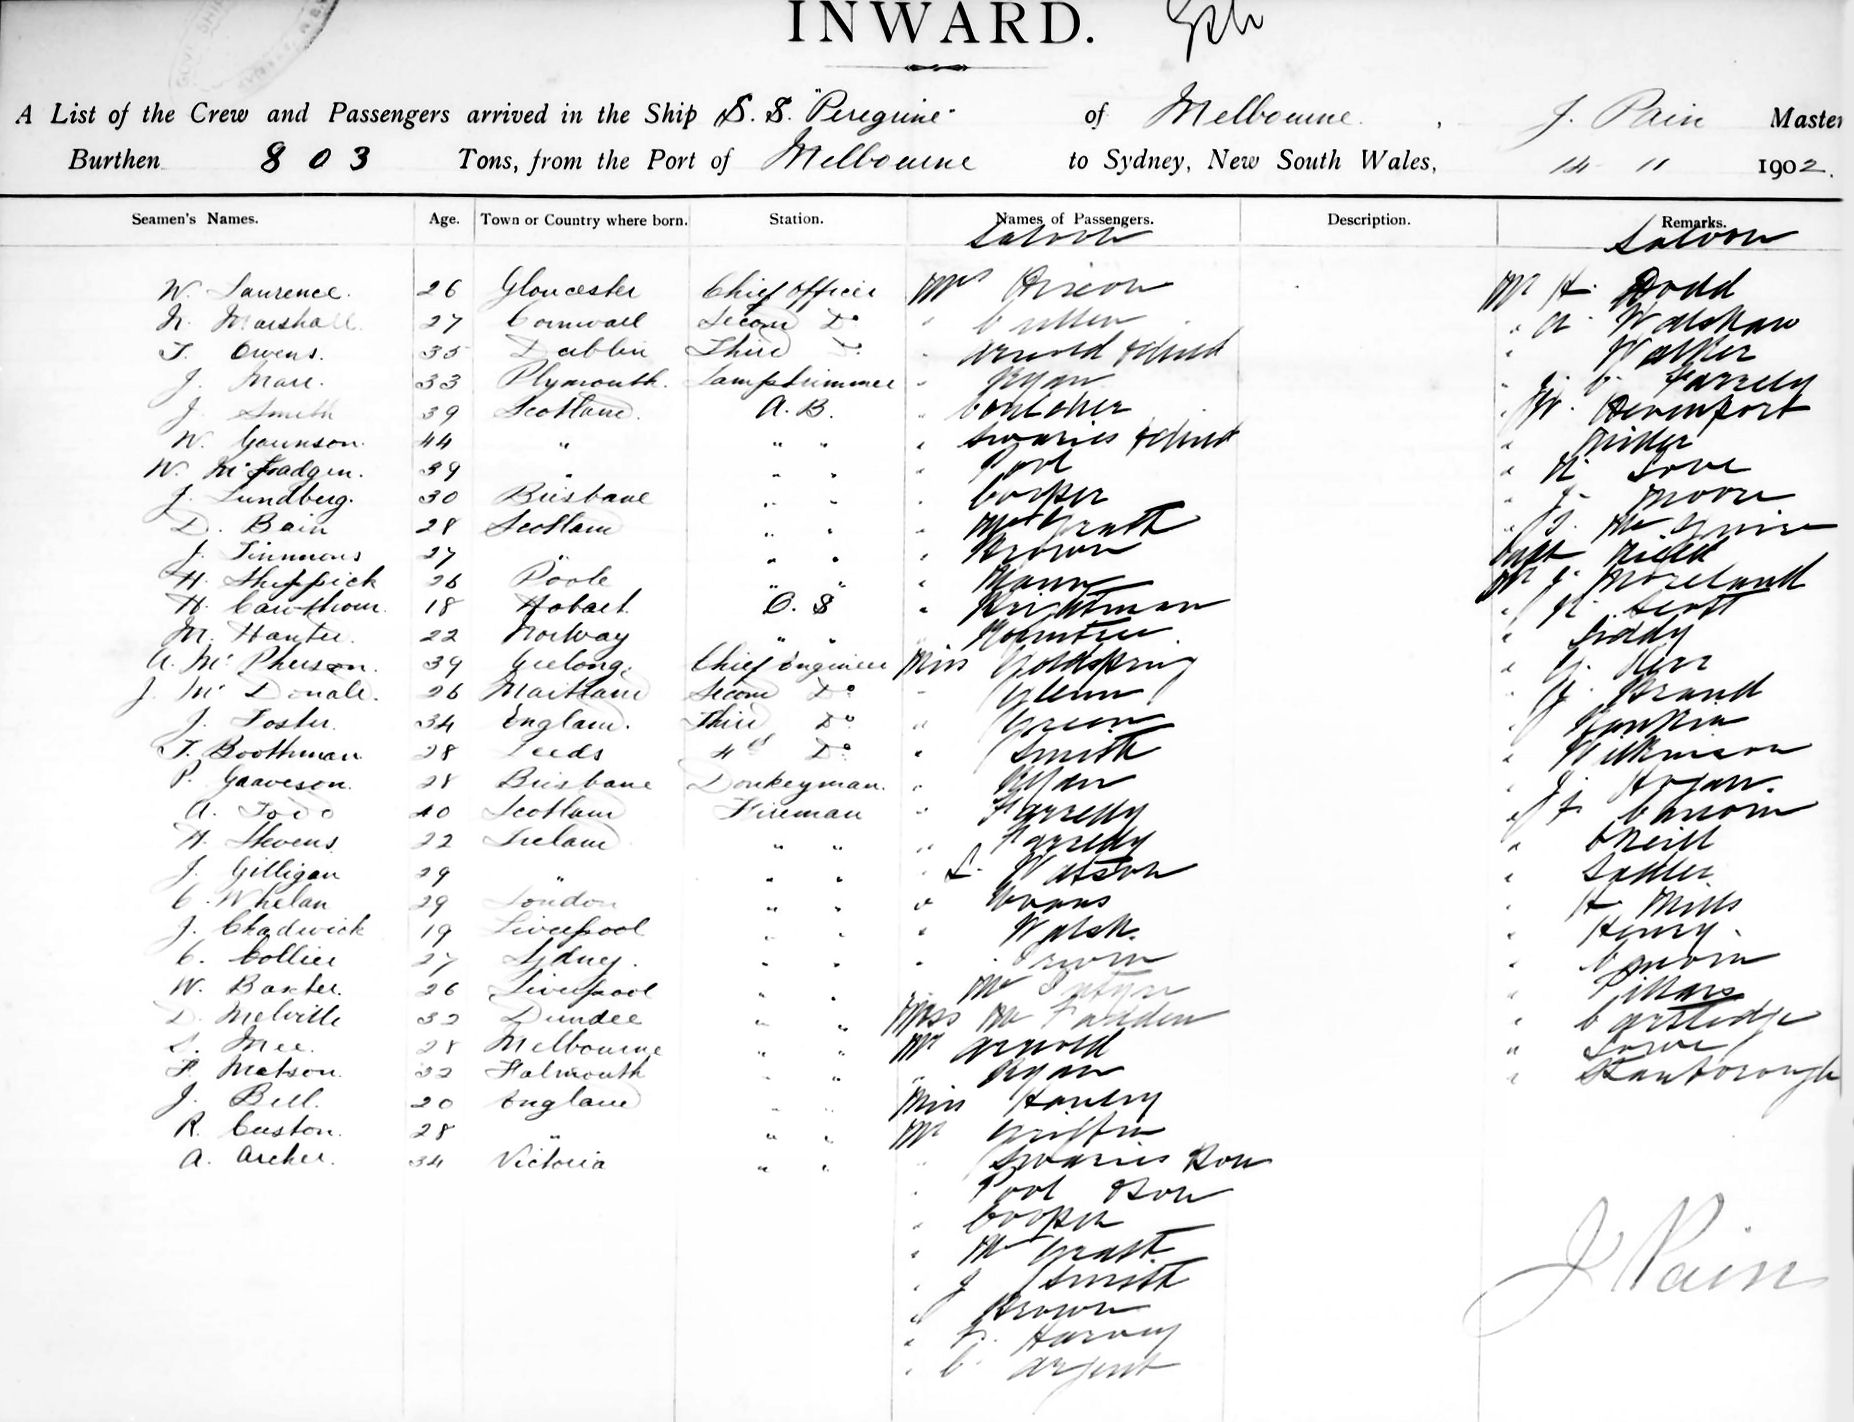 INWARD.
A List of the Crew and Passengers arrived in the Ship S. S. "Peregrine" of Melbourne. , J. Pain Master
Burthen 803 Tons, from the Port of Melbourne to Sydney, New South Wales, 14 11 1902.
Seamen's Names. Age. Town or Country where born. Station. Names of Passengers. Description. Remarks.
Saloon Saloon
W. Laurence. 26 Gloucester Chief Officer Mrs Hixon Mr H. Dodd
N. Marshall. 27 Cornwall Second Do " Cullen " A. Walshaw
T. Owens. 35 Dublin Third Do " Arnold & Child " Walker
J. Mare. 33 Plymouth. Lamptrimmer " Ryan " J. C. Farrely
J. Smith 39 Scotland. A. B. " Boulcher " W. Devenport
W. Gaunson. 44 " " " " Swaries & Child " Miller
W. McFadgen. 39 " " " " Pool " N. Love
J. Lundberg. 30 Brisbane " " " Cooper " J. Moore
D. Bain 28 Scotland " " " McGrath " J. McGuire
J. Timmons 27 " " " " Brown Capt Nield
H. Sheppick 26 Poole " " " Mann Mr J. Moreland
H. Cawthorn. 18 Hobart. O. S " Krightman " W. Scott
M. Hante. 22 Norway " " " Rountree " Liddy
A. McPherson. 39 Geelong. Chief Engineer Miss Goldspring " G. Kerr
J. McDonald. 26 Maitland Second Do " Glenn " J. Brand
J. Foster. 34 England. Third Do " Green " Rankin
T. Boothman 28 Leeds 4th Do " Smith " Wilkinson
P. Gaaveson. 28 Brisbane Donkeyman. " Ryan " J. Hogan.
A. Todd 40 Scotland Fireman " Farrelly " F.
H. Stevens 22 Ireland " " " Farrelly " O'Neill
J. Gilligan 29 " " " " L. Watson " Sadler
C. Whelan 29 London " " " Evans " H. Mills
J. Chadwick 19 Liverpool " " " Walsh. " Henry.
C. Collier 27 Sidney. " " "
W. Baxter. 26 Liverpool " " McIntyre " Pillars
D. Melville 32 Dundee " " Miss McFadden " Cartledge
S. Mee. 28 Melbourne " " Mr Arnold " Lowe
F. Matson. 32 Falmouth " " " Ryan " Stanborough
J. Bell. 20 England " " Miss Hanley
R. Custon. 28 " " " Mr Griffin
A. Archer. 34 Victoria " " " Swaries & Son
" Pool & Son
" Cooper
" McGrath
" J Smith
" J Brown
" F. Harvey
" C. Argent
J Pain